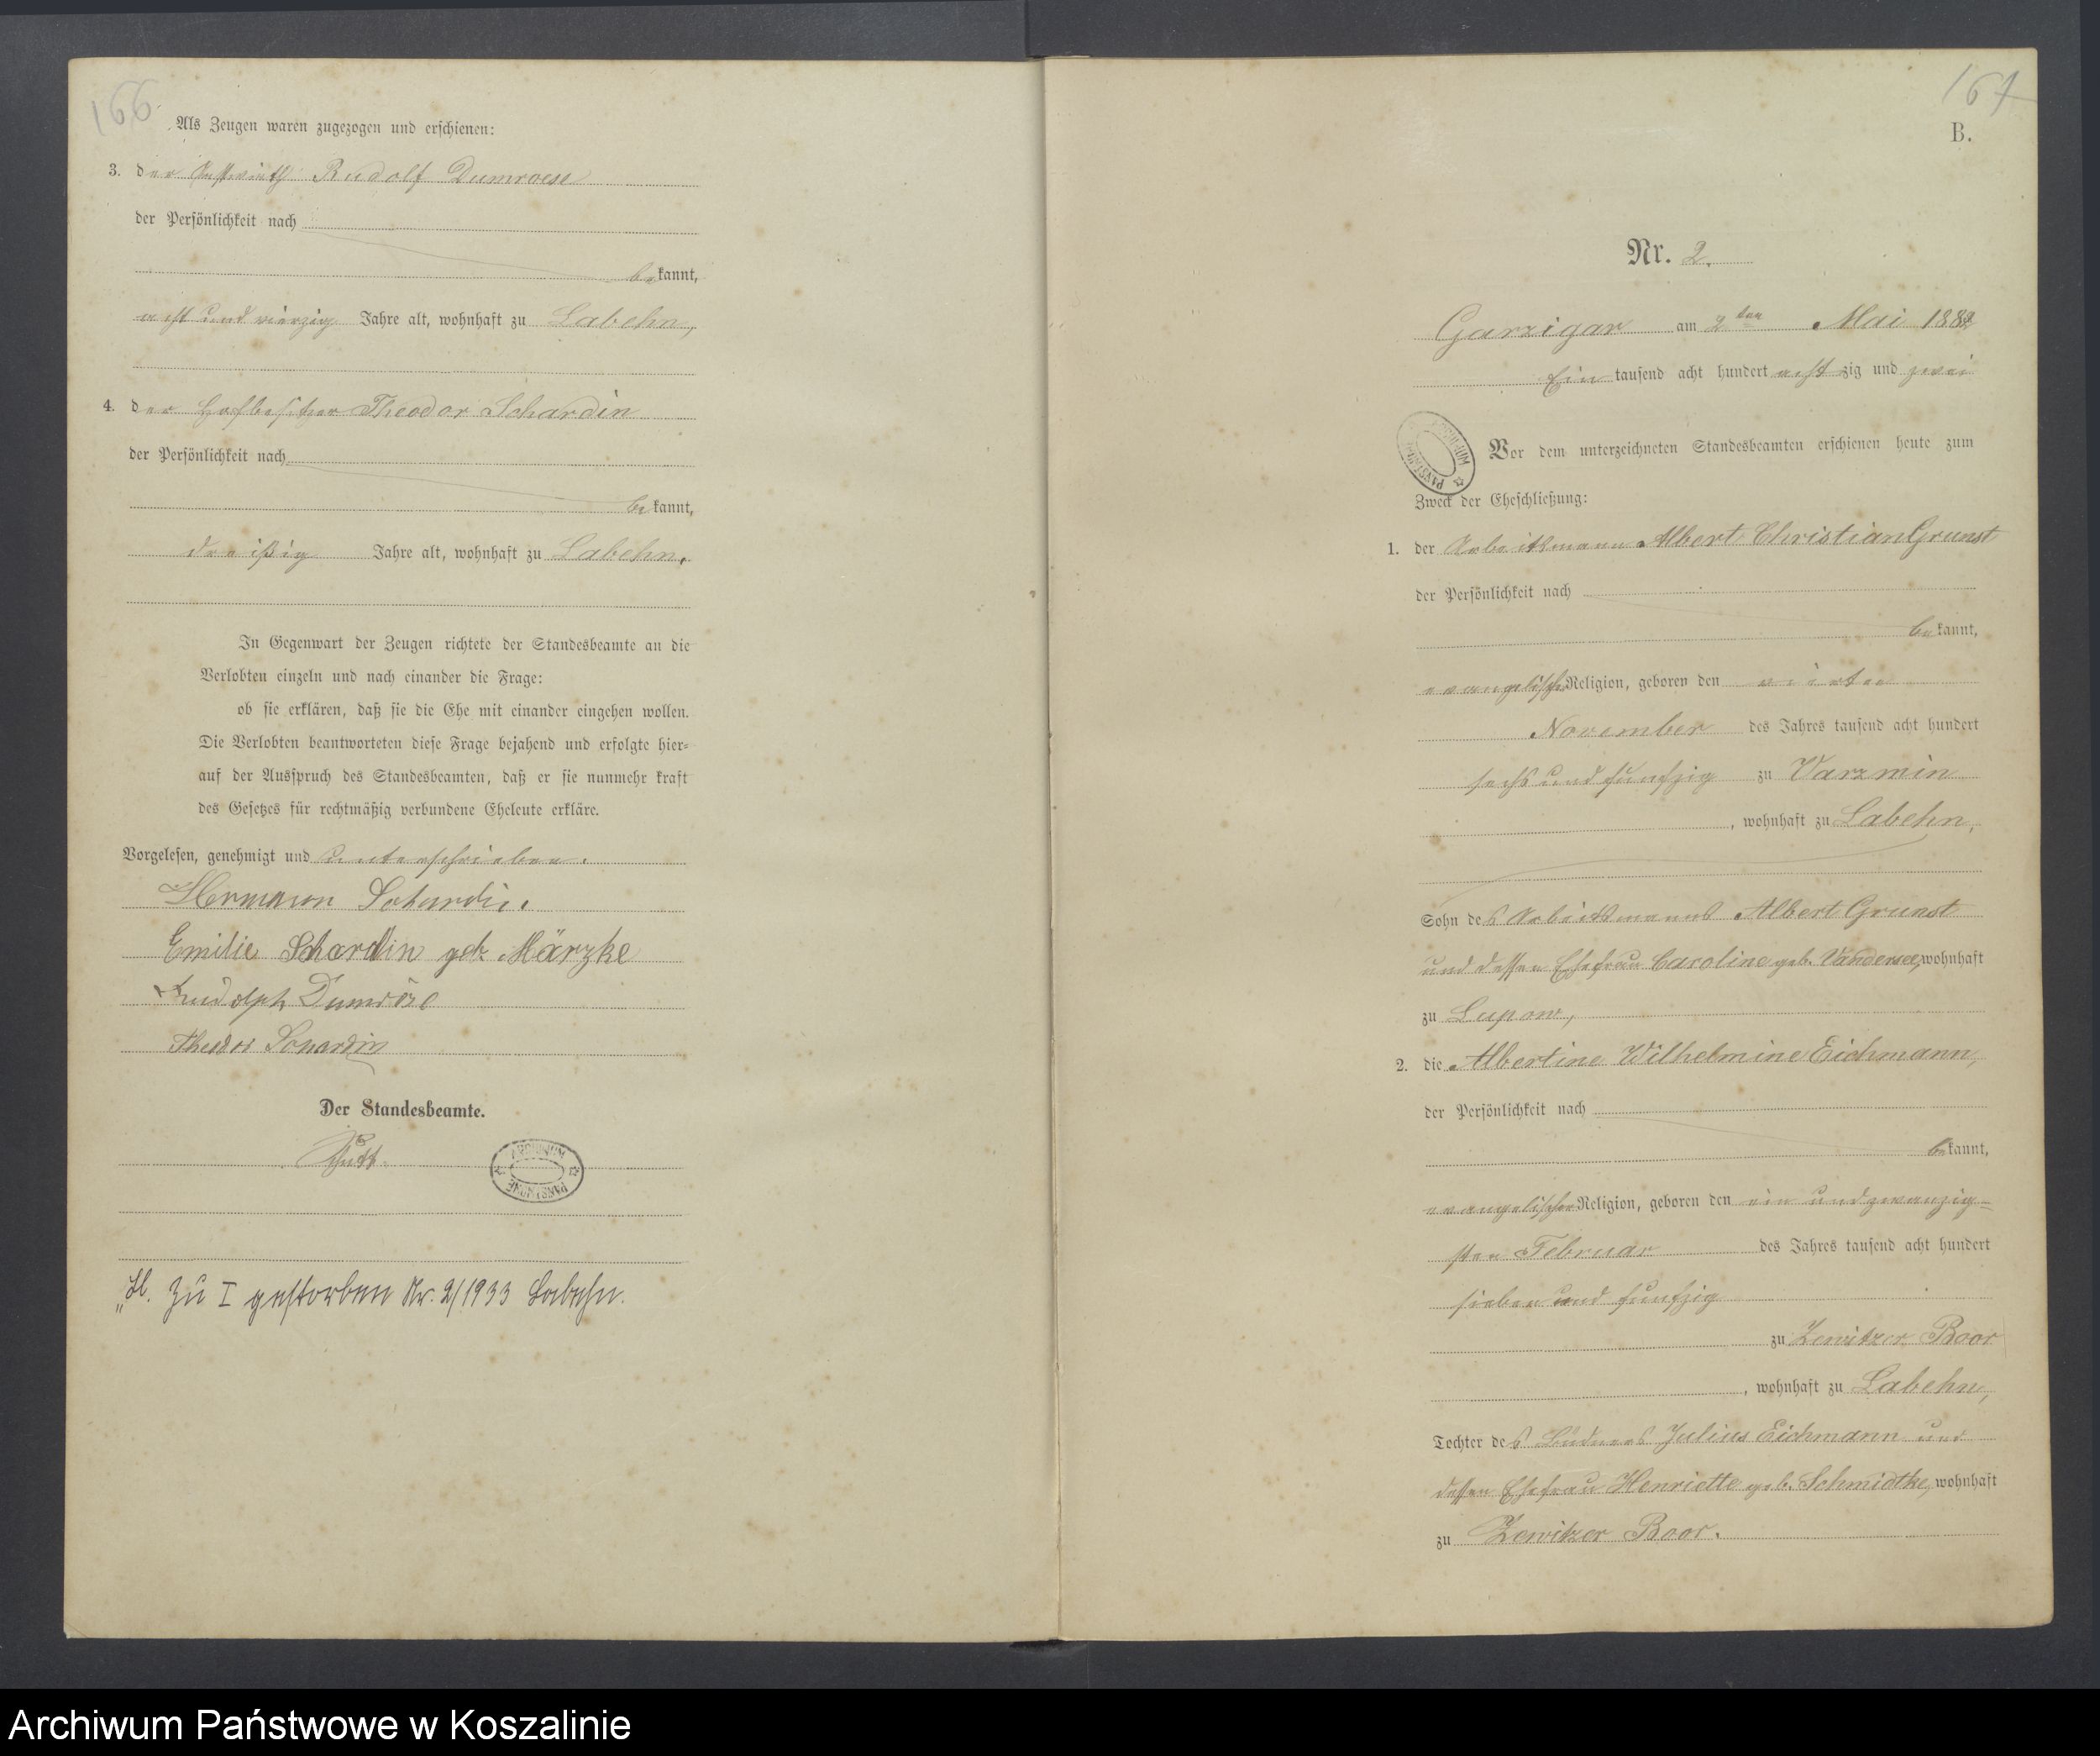 166
Als Zeugen waren zugezogen und erschienen:
3. der Gastwirth Rudolf Dumroese
der Persönlichkeit nach
bekannt,
acht und vierzig Jahre alt, wohnhaft zu Labehn,
4. der Hofbesitzer Theodor Schardin
der Persönlichkeit nach
bekannt,
dreißig Jahre alt, wohnhaft zu Labehn.
In Gegenwart der Zeugen richtete der Standesbeamte an die
Verlobten einzeln und nach einander die Frage:
ob sie erklären, daß sie die Ehe mit einander eingehen wollen.
Die Verlobten beantworteten diese Frage bejahend und erfolgte hier-
auf der Ausspruch des Standesbeamten, daß er sie nunmehr kraft
des Gesetzes für rechtmäßig verbundene Eheleute erkläre.
Vorgelesen, genehmigt und unterschrieben.
Hermann Schardin.
Emilie Schardin geb. Märzke
Rudolph Dumröse
Theodor Schardin
Der Standesbeamte.
ARCHIWUM PAŃSTWOWE
zu I gestorben Nr. 2/1933 Labehn.
167
B.
Nr. 2.
Garzigar am 2ten Mai 1882
Ein tausend acht hundert achtzig und zwei
ARCHIWUM PAŃSTWOWE
Vor dem unterzeichneten Standesbeamten erschienen heute zum
Zweck der Eheschließung:
1. der Arbeitsmann Albert Christian Grunst
der Persönlichkeit nach
bekannt,
evangelischer Religion, geboren den vierten
November des Jahres tausend acht hundert
sechs und funfzig zu Varzmin
, wohnhaft zu Labehn,
Sohn des Arbeitsmanns Albert Grunst
und dessen Ehefrau Caroline geb. Vandersee, wohnhaft
zu Lupow,
2. die Albertine Wilhelmine Eichmann,
der Persönlichkeit nach
bekannt,
evangelischer Religion, geboren den ein und zwanzig-
sten Februar des Jahres tausend acht hundert
sieben und funfzig
zu Zewitzer Boor
, wohnhaft zu Labehn,
Tochter des Büdners Julius Eichmann und
dessen Ehefrau Henriette geb. Schmidtke, wohnhaft
zu Zewitzer Boor.
Archiwum Państwowe w Koszalinie